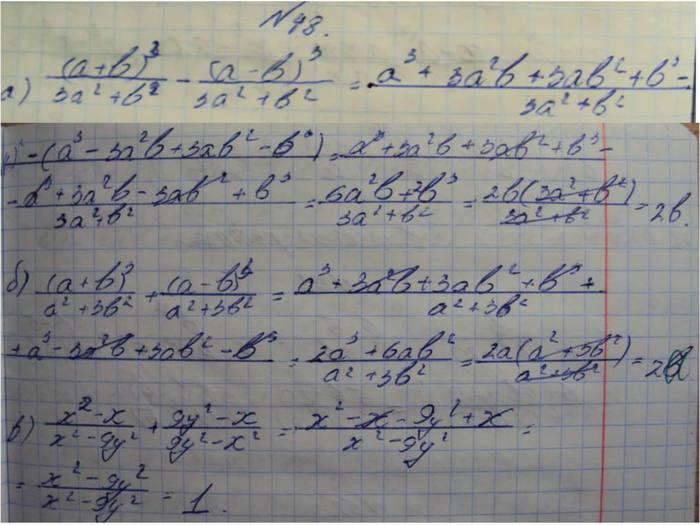 № 48.
а) (a+b)³/(3a²+b²) - (a-b)³/(3a²+b²) = a³+3a²b+3ab²+b³-/(3a²+b²)
-(a³-3a²b+3ab²-b³) = a³+3a²b+3ab²+b³-
-a³+3a²b-3ab²+b³/(3a²+b²) = 6a²b+2b³/(3a²+b²) = 2b(3a²+b²)/(3a²+b²) = 2b.
б) (a+b)³/(a²+3b²) + (a-b)³/(a²+3b²) = a³+3a²b+3ab²+b³+/(a²+3b²)
+a³-3a²b+3ab²-b³ = 2a³+6ab²/(a²+3b²) = 2a(a²+3b²)/(a²+3b²) = 2a
в) x²-x/(x²-9y²) + 9y²-x/(9y²-x²) = x²-x-9y²+x/(x²-9y²) =
= x²-9y²/(x²-9y²) = 1.